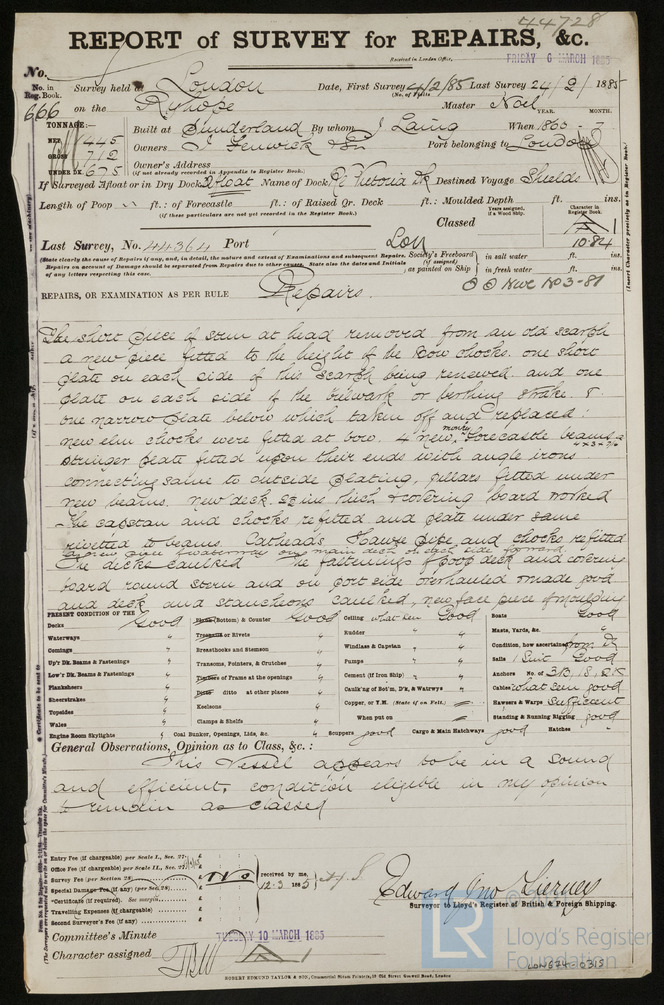 44728
REPORT of SURVEY for REPAIRS, &c.
Received in London Office, FRIDAY 6 MARCH 1885
No.
No. in Reg. Book. Survey held at London Date, First Survey 4/2/85 Last Survey 24/2/1885
(No. of Visits
666 on the Ryhope Master Noel
TONNAGE:— YEAR. MONTH.
NET 445 Built at Sunderland By whom J Laing When 1860 - 7
GROSS 712 Owners J Fenwick & Son Port belonging to London
UNDER DK. 675 Owner's Address
(if not already recorded in Appendix to Register Book.)
If Surveyed Afloat or in Dry Dock Afloat Name of Dock Victoria Dk Destined Voyage Shields
Length of Poop ft.: of Forecastle ft.: of Raised Qr. Deck ft.: Moulded Depth ft. ins.
(if these particulars are not yet recorded in the Register Book.)
Years assigned, if a Wood Ship. Character in Register Book.
Classed A 1
Last Survey, No. 44364 Port Lon 10.84
(State clearly the cause of Repairs if any, and, in detail, the nature and extent of Examinations and subsequent Repairs.
Repairs on account of Damage should be separated from Repairs due to other causes. State also the dates and Initials
of any letters respecting this case.
Society's Freeboard (if assigned) as painted on Ship in salt water ft. ins.
in fresh water ft. ins.
(Insert Character precisely as in Register Book.)
REPAIRS, OR EXAMINATION AS PER RULE Repairs.
The short piece of stem at head removed from an old scarph
a new piece fitted to the height of the bow chocks. one short
plate on each side of this scarph being renewed and one
plate on each side of the bulwark or berthing strake. &
one narrow plate below which taken off and replaced:
new elm chocks were fitted at bow. 4 new Forecastle beams a
stringer plate fitted upon their ends with angle irons
connecting same to outside plating, pillars fitted under
new beams. new deck ins thick & covering board worked
The capstan and chocks refitted and plate under same
rivetted to beams. Catheads, Hawse pipe and chocks refitted
a new piece of waterway on main deck on each side forward.
The decks caulked The fastenings of poop deck and covering
board round stern and on port side overhauled & made good
and deck and stanchions caulked, new face piece of moulding
PRESENT CONDITION OF THE
Decks Good
Waterways "
Comings "
Up'r Dk. Beams & Fastenings "
Low'r Dk. Beams & Fastenings "
Planksheers "
Sheerstrakes "
Topsides "
Wales "
Engine Room Skylights "
Plank (Bottom) & Counter Good
Treenails or Rivets "
Breasthooks and Stemson "
Transoms, Pointers, & Crutches "
Timbers of Frame at the openings "
Ditto ditto at other places "
Keelsons "
Clamps & Shelfs "
Coal Bunker, Openings, Lids, &c. "
Ceiling what seen Good
Rudder "
Windlass & Capstan "
Pumps "
Cement (if Iron Ship) "
Caulk'ng of Bot'm, D'k, & Watrwys "
Copper, or Y.M. (State if on Felt.)
When put on
Scuppers good Cargo & Main Hatchways good Hatches "
Boats Good
Masts, Yards, &c. "
Condition, how ascertained from Dk
Sails 1 Suit Good
Anchors No. of 3B, 1S, 2K
Cables what seen good
Hawsers & Warps Sufficient
Standing & Running Rigging good
General Observations, Opinion as to Class, &c.:
This Vessel appears to be in a sound
and efficient condition eligible in my opinion
to remain as classed
Entry Fee (if chargeable) per Scale I., Sec. 27 £
Office Fee (if chargeable) per Scale II., Sec. 27 £
Survey Fee (per Section 28) £
Special Damage Fee (if any) (per Sec. 28) £
Certificate (if required). See margin £
Travelling Expenses (if chargeable) £
Second Surveyor's Fee (if any) £
received by me,
Edward Jno Tierney
Surveyor to Lloyd's Register of British & Foreign Shipping.
Committee's Minute TUESDAY 10 MARCH 1885
Character assigned A 1
ROBERT EDMUND TAYLOR & SON, Commercial Steam Printers, 19 Old Street Goswell Road, London
LR
Lloyd's Register
Foundation
LON674-0315